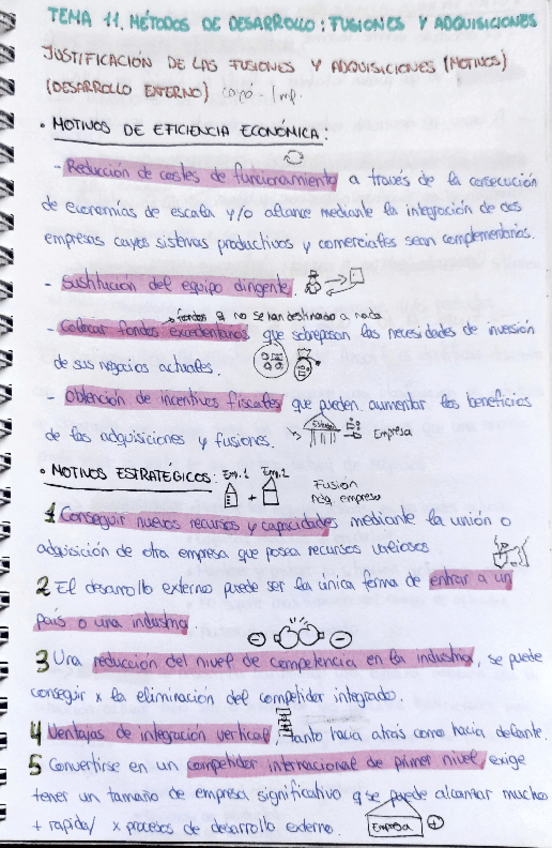 TEMA 11. MÉTODOS DE DESARROLLO: FUSIONES Y ADQUISICIONES
JUSTIFICACIÓN DE LAS FUSIONES Y ADQUISICIONES (MOTIVOS)
(DESARROLLO EXTERNO)
• MOTIVOS DE EFICIENCIA ECONÓMICA:
- Reducción de costes de funcionamiento a través de la consecución
de economías de escala y/o alcance mediante la integración de dos
empresas cuyos sistemas productivos y comerciales sean complementarios.
- Sustitución del equipo dirigente.
→ fondos q no se han destinado a nada
- Colocar fondos excedentarios que sobrepasan las necesidades de inversión
de sus negocios actuales.
- Obtención de incentivos fiscales que pueden aumentar los beneficios
de las adquisiciones y fusiones.
Estado
Empresa
• MOTIVOS ESTRATÉGICOS: Emp.1 Emp.2
+
Fusion
empresa
1 Conseguir nuevos recursos y capacidades mediante la unión o
adquisición de otra empresa que posea recursos valiosos
2 El desarrollo externo puede ser la única forma de entrar a un
país o una industria.
3 Una reducción del nivel de competencia en la industria, se puede
conseguir x la eliminación del competidor integrado.
4 Ventajas de integración vertical, tanto hacia atrás como hacia delante.
5 Convertirse en un competidor internacional de primer nivel, exige
tener un tamaño de empresa significativo q se puede alcanzar mucho
+ rapida/ x procesos de desarrollo externo.
Empresa +